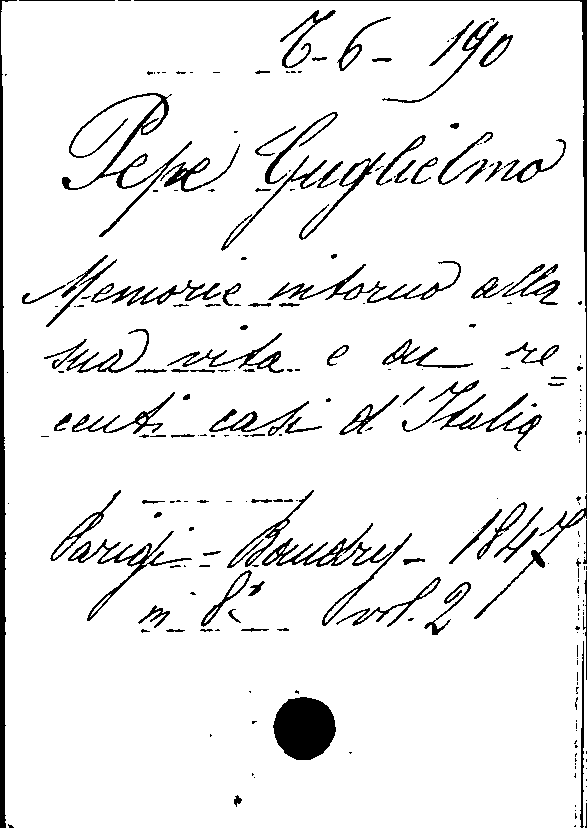 6-6-190
Pepe Guglielmo
Memorie intorno alla
sua vita e ai re=
centi casi d'Italia
Parigi - Baudry - 1847
in 8º vol. 2